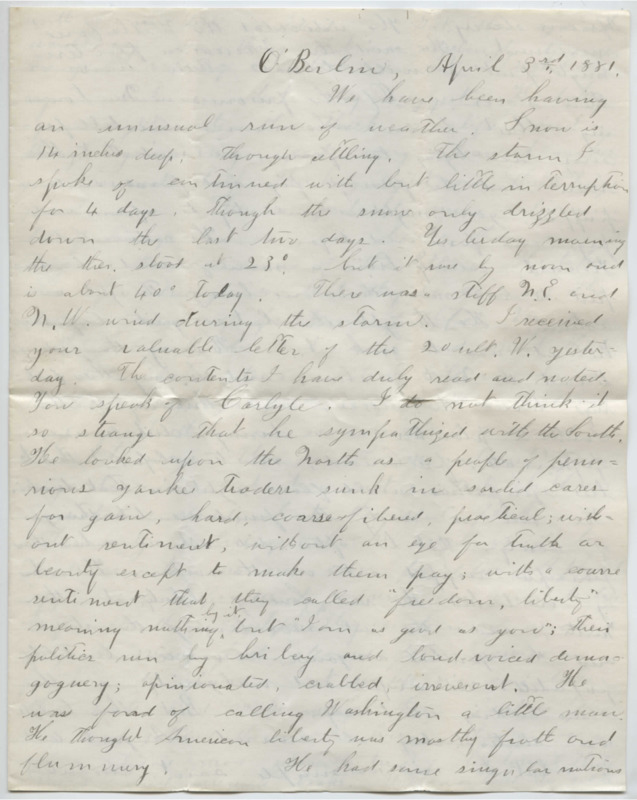 O'Berlin, April 3rd, 1881.
We have been having
an unusual run of weather. Snow is
14 inches deep; though settling. The storm I
spoke of continued with but little interruption
for 4 days. Though the snow only drizzled
down the last two days. Yesterday morning
the ther. stood at 23° but it rose by noon and
is about 40° today. There was a stiff N.E. and
N.W. wind during the storm. I received
your valuable letter of the 20 ult. W. yester-
day. The contents I have duly read and noted.
You speak of Carlyle. I do not think it
so strange that he sympathized with the South.
He looked upon the North as a people of penu-
rious yankee traders sunk in sordid cares
for gain, hard, coarse-fibered, practical; with-
out sentiment, without an eye for truth or
beauty except to make them pay; with a coarse
sentiment that they called "freedom, liberty"
meaning nothing by it, but "I am as good as you"; their
politics run by bribery and loud-voiced dema-
goguery; opinionated, crabbed, irreverent. He
was fond of calling Washington a little man.
He thought American liberty was mostly froth and
flummery. He had some singular notions